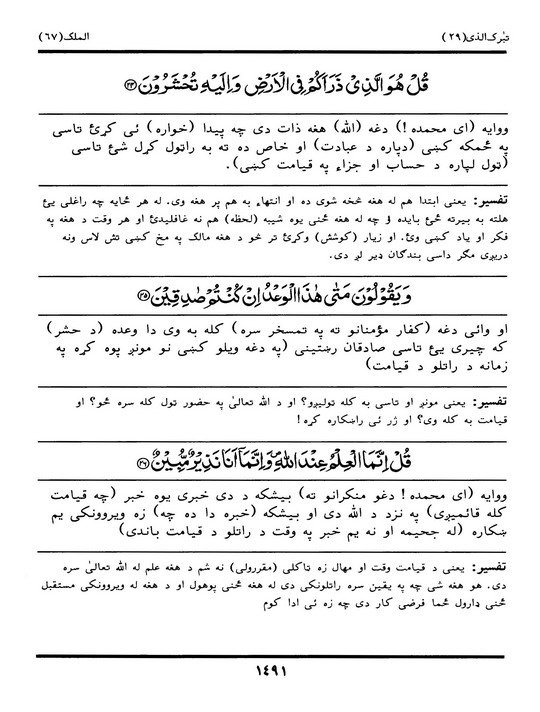 تبٰرک الذی(٢٩) الملک(٦٧)
قُلْ هُوَ الَّذِیْ ذَرَاَكُمْ فِی الْاَرْضِ وَاِلَیْهِ تُحْشَرُوْنَ ﴿٢٤﴾
ووایه (ای محمده!) دغه (الله) هغه ذات دی چه پیدا (خواره) ئی کړئ تاسی
په ځمکه کښی (دپاره د عبادت) او خاص ده ته به راټول کړل شئ تاسی
(ټول لپاره د حساب او جزاء په قیامت کښی).
تفسیر: یعنی ابتدا هم له هغه څخه شوی ده او انتهاء به هم پر هغه وی. له هر ځایه چه راغلی یئ
هلته به بیرته ځئ بایده ؤ چه له هغه ځنی یوه شیبه (لحظه) هم نه غافلیدئ او هر وقت د هغه په
فکر او یاد کښی وئ. او زیار (کوشش) وکړئ تر څو د هغه مالک په مخ کښی تش لاس ونه
دریږی مگر داسی بندگان ډیر لږ دی.
وَیَقُوْلُوْنَ مَتٰی هٰذَا الْوَعْدُ اِنْ كُنْتُمْ صٰدِقِیْنَ ﴿٢٥﴾
او وائی دغه (کفار مؤمنانو ته په تمسخر سره) کله به وی دا وعده (د حشر)
که چیری یئ تاسی صادقان رښتینی (په دغه ویلو کښی نو مونږ پوه کړه په
زمانه د راتلو د قیامت)
تفسیر: یعنی مونږ او تاسی به کله ټولیږو؟ او د الله تعالیٰ په حضور ټول کله سره ځو؟ او
قیامت به کله وی؟ او ژر ئی راښکاره کړه!
قُلْ اِنَّمَا الْعِلْمُ عِنْدَ اللّٰهِ وَاِنَّمَاۤ اَنَا نَذِیْرٌ مُّبِیْنٌ ﴿٢٦﴾
ووایه (ای محمده! دغو منکرانو ته) بیشکه د دی خبری یوه خبر (چه قیامت
کله قائمیږی) په نزد د الله دی او بیشکه (خبره دا ده چه) زه ویروونکی یم
ښکاره (له جحیمه او نه یم خبر په وقت د راتلو د قیامت باندی)
تفسیر: یعنی د قیامت وقت او مهال زه تاکلی (مقررولی) نه شم د هغه علم له الله تعالیٰ سره
دی. هو هغه شی چه په یقین سره راتلونکی دی له هغه ځنی پوهول او د هغه له ویروونکی مستقبل
ځنی ډارول ځما فرضی کار دی چه زه ئی ادا کوم
١٤٩١